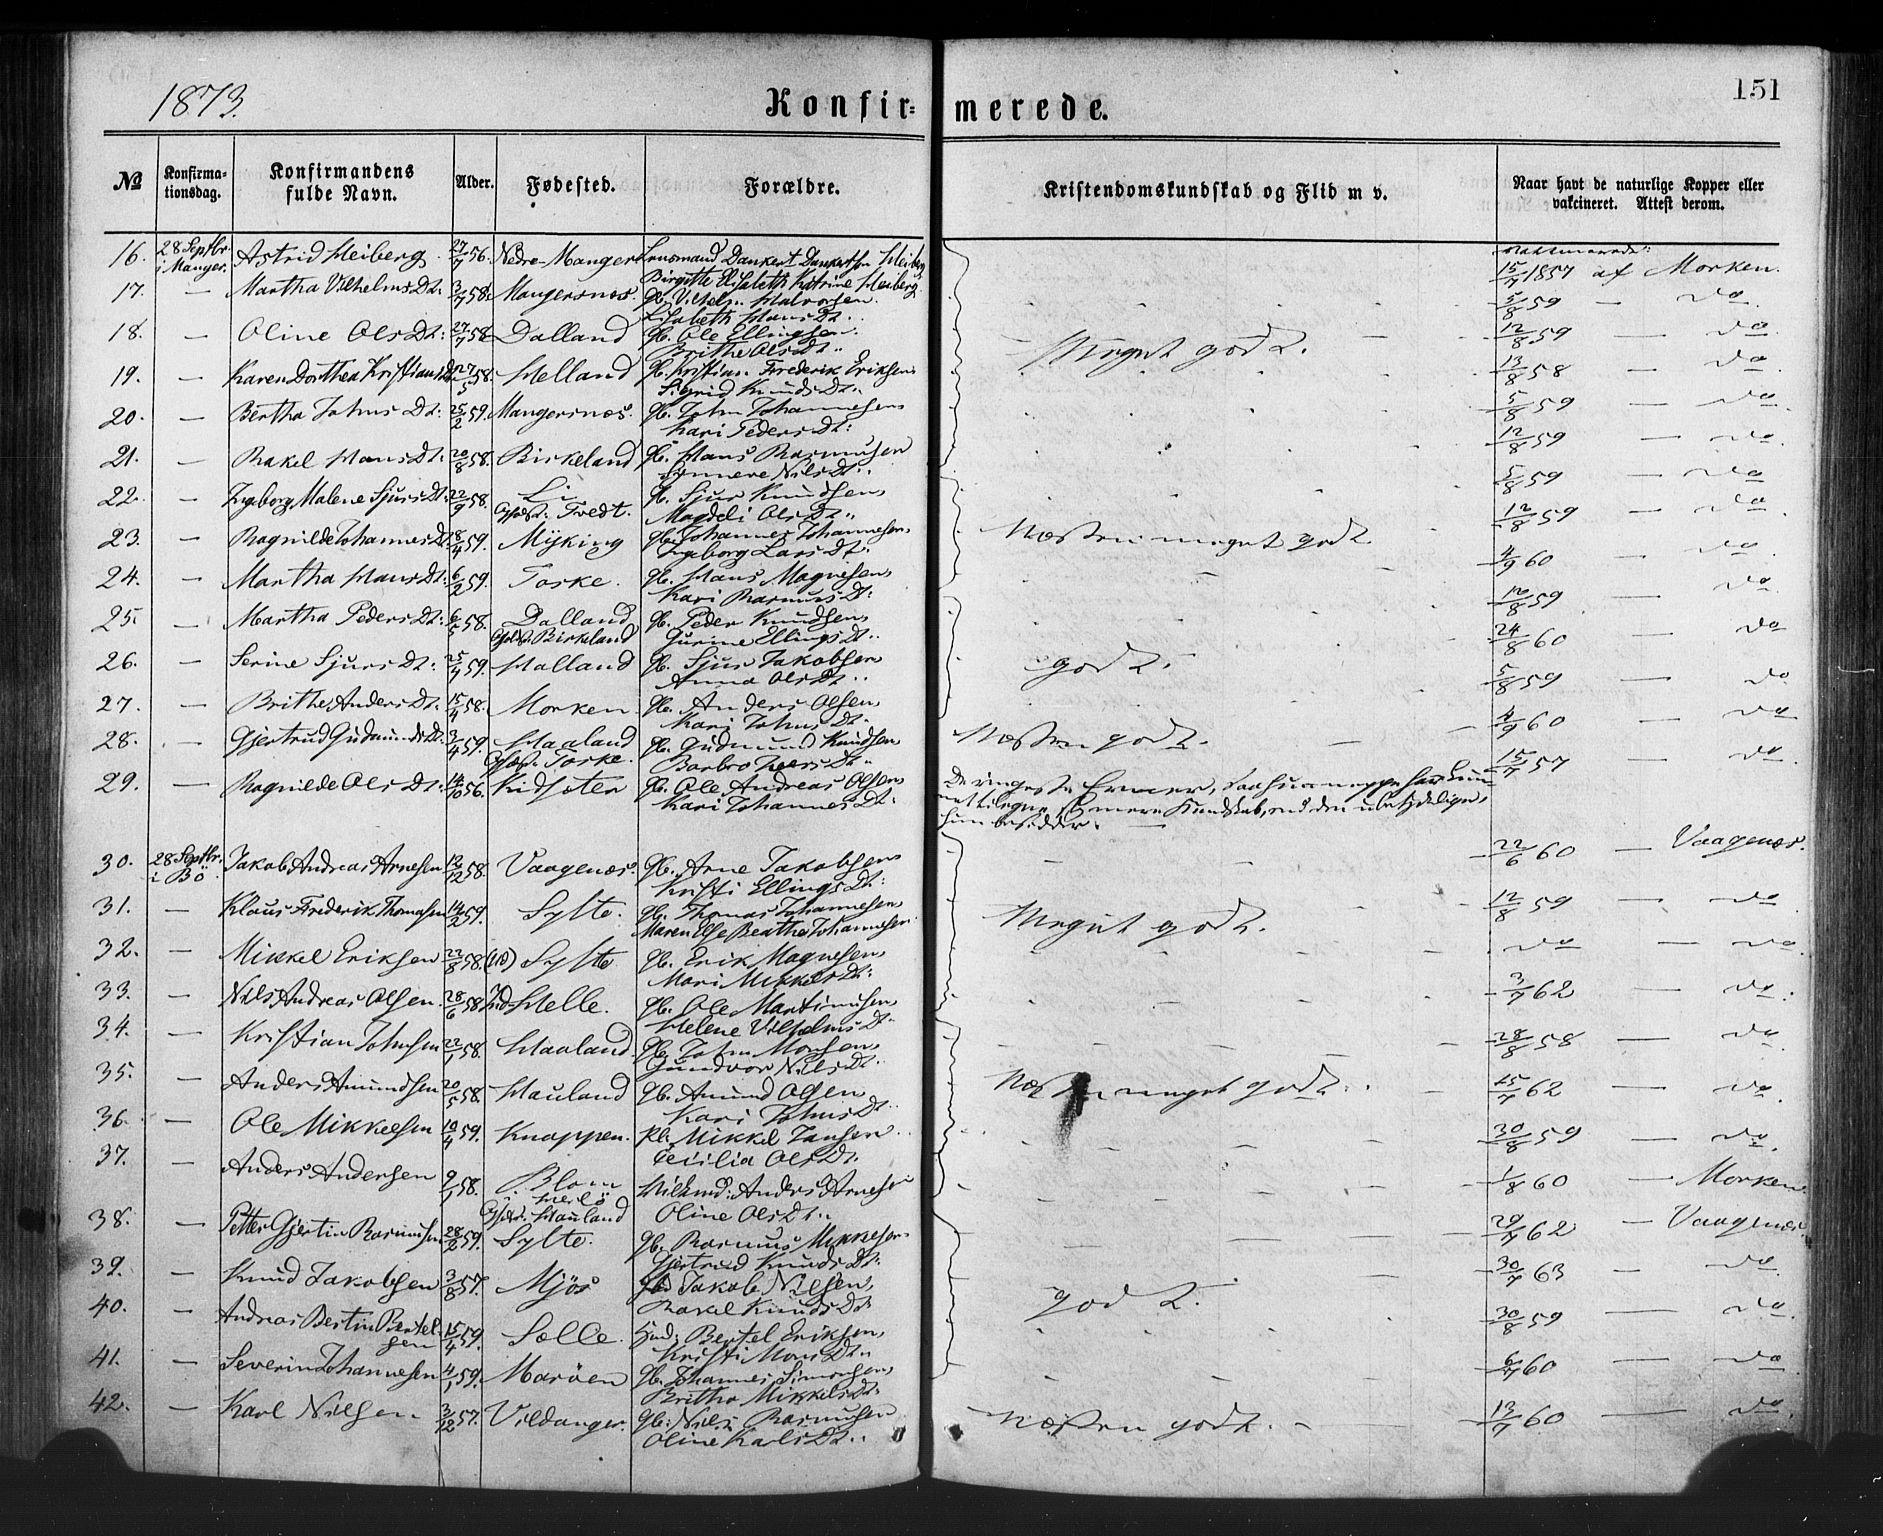 1873.
Konfir=
merede.
151
No
Konfirma-
tionsdag.
Konfirmandens
fulde Navn.
Alder.
Fødested.
Forældre.
Kristendomskundskab og Flid m v.
Naar havt de naturlige Kopper eller
vakcineret. Attest derom.
16. 28 Septbr. i Manger. Astrid Heiberg 27/7 56. Nedre-Manger Dankert Dankertsen Heiberg
Birgitte Elisabeth Katrine Heiberg. 15/7 1857 af Morken.
17. — Martha Vilhelms Dt: 3/7 58. Mangersnes. Gb. Vilhelm Halvorsen
Lisabeth Hans Dt. 5/8 59 — do
18. — Oline Ols Dt: 27/7 58 Dalland Gb. Ole Ellingsen
Brithe Ols Dt.. Meget godt. 12/8 59 — do
19. — Karen Dorthea Kristians Dt 27/5 58. Helland Gb. Kristian Frederik Eriksen
Sigrid Knuds Dt.. 13/8 58 — do
20. — Bertha Johns Dt: 25/2 59. Mangersnes. Gb. John Johannesen
Kari Peders Dt: 5/8 59 — do
21. — Rakel Hans Dt: 20/8 58. Birkeland Gb. Hans Rasmusen
Synneve Nils Dt.. 12/8 59 — do
22. — Ingeborg Malene Sjurs Dt: 22/9 58. Li
Tvedt. Gb. Sjur Knudsen
Magdeli Ols Dt.. 5/8 59 — do
23. — Ragnilde Johannes Dt 18/4 59. Mjsking Gb. Johannes Johannesen
Ingeborg Lars Dt. Næsten meget godt 12/8 59 — do
24. — Martha Hans Dt: 6/2 59. Toske. Gb. Hans Magnesen
Kari Rasmus Dt: 4/9 60 — do
25. — Martha Peders Dt: 6/5 58. Dalland
Birkeland Gb. Peder Knudsen
Gurine Ellings Dt.. 12/8 59 — do
26. — Serine Sjurs Dt: 25/4 59. Halland Gb. Sjur Jakobsen
Anna Ols Dt.. godt. 24/8 60 — do
27. — Brithe Anders Dt. 15/4 58. Morken Gb. Anders Olsen
Kari Johns Dt. 5/8 59 — do
28. — Gjertrud Gudmunds Dt. 3/4 59. Haaland
Toske. Gb. Gudmund Knudsen
Barbro Ivers Dt.. Næsten godt. 4/9 60 — do
29. — Ragnilde Ols Dt. 14/10 56. Kidsoter Gb. Ole Andreas Olsen
Kari Johannes Dt: De ringeste Evner,
Kundskab, end den ubetydelige,
hun besidder. 15/7 57 — do
30. 28 Septbr. i Bö. Jakob Andreas Arnesen 12/12 58. Vaagenæs. Gb. Arne Jakobsen
Kristi Ellings Dt: 22/6 60 — Vaagenæs.
31. — Klaus Frederik Thomasen 14/2 59. Sylte. Gb. Thomas Johannesen
Maren Else Beathe Johannesen Meget godt. 12/8 59 — do
32. — Mikkel Eriksen 22/8 58. Sylte Gb. Erik Magnesen
Mari Mikkels Dt: do — do
33. — Nils Andreas Olsen. 28/6 58 Helle. Gb. Ole Martinusen
Helene Vilhelms Dt.. 3/7 62 — do
34. — Kristian Johnsen 22/1 58. Haaland. Gb. John Monsen
Gundvor Nils Dt. 28/8 58 — do
35. — Anders Amundsen 20/5 58. Hauland Gb. Amund Olsen
Kari Johns Dt. Næsten meget godt. 15/7 62 — do
36. — Ole Mikkelsen 10/4 59. Knappen. Pl. Mikkel Jansen
Cecilia Ols Dt. 30/8 59 — do
37. — Anders Andersen 9/1 58. Blom
i Herlö
Hauland Anders Arnesen
Oline Ols Dt.. 1/8 60 — Morken
38. — Petter Gjertin Rasmusen 28/2 59. Sylte. Gb. Rasmus Mikkelsen
Gjertrud Knuds Dt: 29/7 62 — Vaagenæs.
39. — Knud Jakobsen 3/8 57. Mjös Gb. Jakob Nilsen
Rakel Knuds Dt godt. 30/7 63 — do
40. — Andreas Bertin Bertel-
sen 15/4 59. Sælle. Bertel Eriksen
Kristi Mons Dt.. 30/8 59 — do
41. — Severin Johannesen 4/1 59. Maröen Gb. Johannes Simonsen
Brithe Mikkels Dt. 6/7 60 — do
42. — Karl Nilsen 3/12 57. Vildanger. Gb. Nils Rasmusen
Oline Karls Dt.. Næsten godt. — 13/7 60 — do